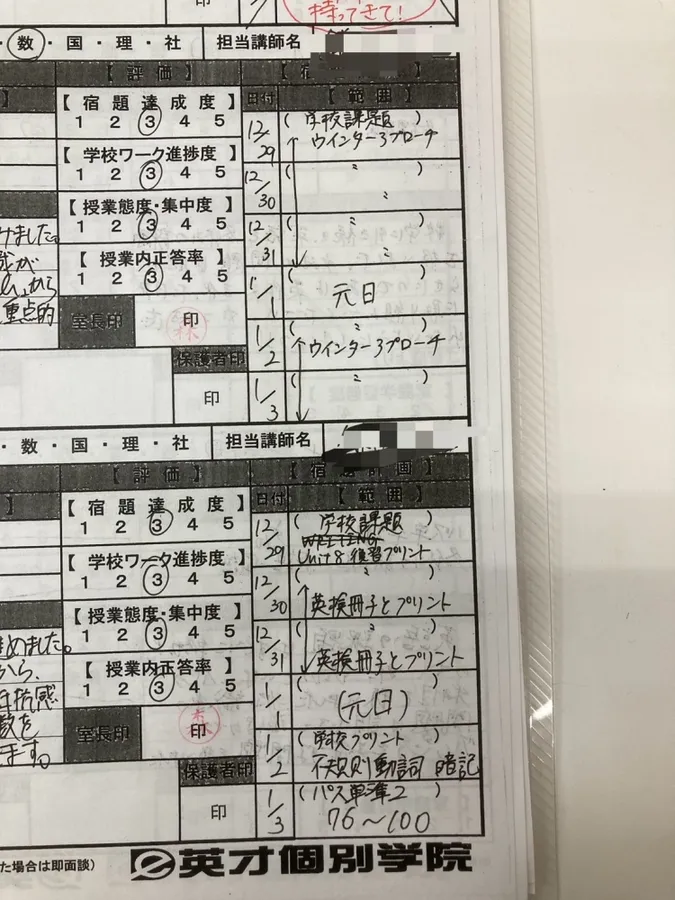 持ってきて!
数・国・理・社 担当講師名
【評価】
【宿題達成度】 日付 【範囲】
1 2 3 4 5
12/29 (学校課題)
ウインターアプローチ
【学校ワーク進捗度】
1 2 3 4 5
12/30 ( 〃 )
〃
【授業態度・集中度】
1 2 3 4 5
12/31 ( 〃 )
【授業内正答率】
1 2 3 4 5
1/1 ( )
元日
室長印 印 森
1/2 ( 〃 )
ウインターアプローチ
保護者印
印
1/3 ( 〃 )
りました。
が
から
重点的
・数・国・理・社 担当講師名
【評価】 【宿題計画】
【宿題達成度】 日付 【範囲】
1 2 3 4 5
12/29 (学校課題)
Unit8 復習プリント
【学校ワーク進捗度】
1 2 3 4 5
12/30 ( 〃 )
英検冊子とプリント
【授業態度・集中度】
1 2 3 4 5
12/31 ( 〃 )
英検冊子とプリント
【授業内正答率】
1 2 3 4 5
1/1 (元日)
室長印 印 森
1/2 (学校プリント)
不規則動詞 暗記
保護者印
印
1/3 (パス単準2)
76~100
進めました。
から、
ます。
た場合は即面談)
英才個別学院